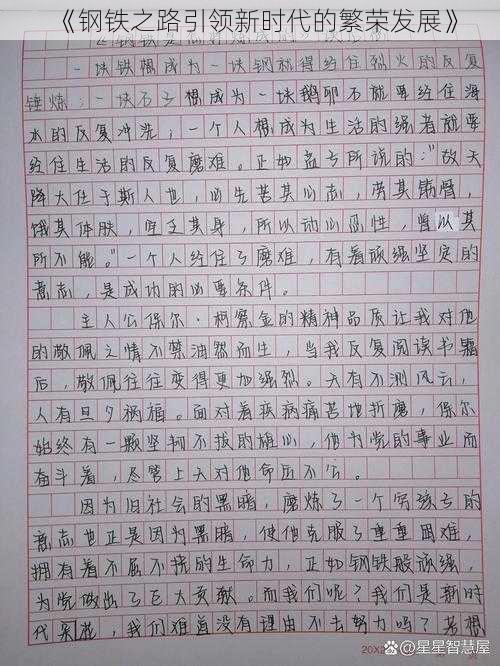 《钢铁之路引领新时代的繁荣发展》
一块铁想成为一块钢就得经住烈火的反复
锤炼；一块石子想成为一块鹅卵石就要经住海
水的反复冲洗；一个人想成为生活的强者就要
经住生活的反复磨难。正如孟子所说的："故天
降大任于斯人也，必先苦其心志，劳其筋骨，
饿其体肤，空乏其身，所以动心忍性，曾以其
所不能。"一个人经住了磨难，有着顽强坚定的
意志，是成功的必要条件。
主人公保尔·柯察金的精神品质让我对他
的敬佩之情不禁油然而生，当我反复阅读书籍
后，敬佩往往变得更加强烈。天有不测风云，
人有旦夕祸福。面对着疾病痛苦地折磨，保尔
始终有一颗坚韧不拔的雄心，他为党的事业而
奋斗着，尽管上天对他命运不公。
因为旧社会的黑暗，磨炼了一个穷孩子的
意志也正是因为黑暗，使他克服了重重困难，
拥有着不屈不挠的生命力，正如钢铁般顽强，
为党做出了巨大贡献。而我们呢？我们是新时
代 ，我们难道没有理由不去努力吗？
20×2
星星智慧屋